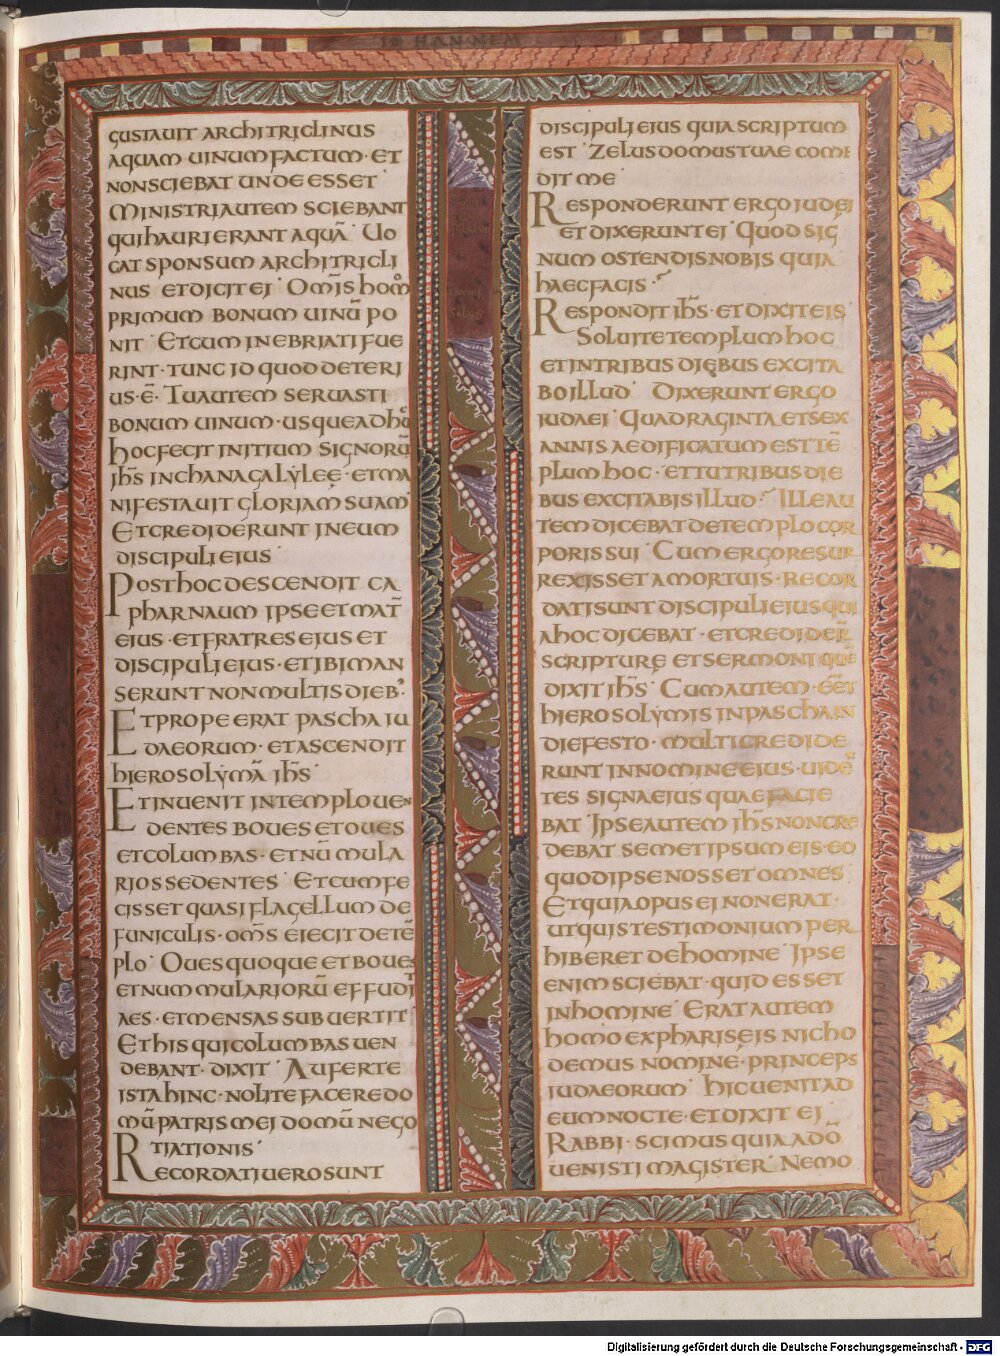 IOHANNEM
GUSTAUIT ARCHITRICLINUS
AQUAM UINUM FACTUM · ET
NON SCIEBAT UNDE ESSET
MINISTRI AUTEM SCIEBANT
QUI HAURIERANT AQUĀ UO
CAT SPONSUM ARCHITRICLI
NUS ET DICIT EI OM̄IS HOM̊
PRIMUM BONUM UINŪ PO
NIT ET CUM INEBRIATI FUE
RINT · TUNC ID QUOD DETERI
US · Ē · TU AUTEM SERUASTI
BONUM UINUM · USQUE ADHUC
HOC FECIT INITIUM SIGNORŪ
IH̄S IN CHANA GALYLEĘ · ET MA
NIFESTAUIT GLORIAM SUAM
ET CREDIDERUNT IN EUM
DISCIPULI EIUS
POST HOC DESCENDIT CA
PHARNAUM IPSE ET MAT̄
EIUS · ET FRATRES EIUS ET
DISCIPULI EIUS · ET IBI MAN
SERUNT NON MULTIS DIEB;
ET PROPE ERAT PASCHA IU
DAEORUM · ET ASCENDIT
HIEROSOLYMĀ IH̄S
ET INUENIT IN TEMPLO UEN
DENTES BOUES ET OUES
ET COLUMBAS · ET NŪMULA
RIOS SEDENTES ET CUM FE
CISSET QUASI FLAGELLUM DE
FUNICULIS · OM̄S EIECIT DE TĒ
PLO OUES QUOQUE ET BOUES
ET NUMMULARIORŪ EFFUDIT
AES · ET MENSAS SUBUERTIT
ET HIS QUI COLUMBAS UEN
DEBANT · DIXIT AUFERTE
ISTA HINC · NOLITE FACERE DO
MŪ PATRIS MEI DOMŪ NEGO
TIATIONIS
RECORDATI UERO SUNT
DISCIPULI EIUS QUIA SCRIPTUM
EST ZELUS DOMUS TUAE COME
DIT ME
RESPONDERUNT ERGO IUDEI
ET DIXERUNT EI QUOD SIG
NUM OSTENDIS NOBIS QUIA
HAEC FACIS
RESPONDIT IH̄S · ET DIXIT EIS
SOLUITE TEMPLUM HOC
ET IN TRIBUS DIEBUS EXCITA
BO ILLUD DIXERUNT ERGO
IUDAEI QUADRAGINTA ET SEX
ANNIS AEDIFICATUM EST TĒ
PLUM HOC · ET TU TRIBUS DIE
BUS EXCITABIS ILLUD ILLE AU
TEM DICEBAT DE TEMPLO COR
PORIS SUI CUM ERGO RESUR
REXISSET A MORTUIS · RECOR
DATI SUNT DISCIPULI EIUS QUI
A HOC DICEBAT · ET CREDIDER̄
SCRIPTURĘ ET SERMONI QUĒ
DIXIT IH̄S CUM AUTEM · EĒT
HIEROSOLYMIS IN PASCHA IN
DIE FESTO · MULTI CREDIDE
RUNT IN NOMINE EIUS · UIDĒ
TES SIGNA EIUS QUAE FACIE
BAT IPSE AUTEM IH̄S NON CRE
DEBAT SEMETIPSUM EIS · EO
QUOD IPSE NOSSET OMNES
ET QUIA OPUS EI NON ERAT ·
UT QUIS TESTIMONIUM PER
HIBERET DE HOMINE IPSE
ENIM SCIEBAT · QUID ESSET
IN HOMINE ERAT AUTEM
HOMO EX PHARISĘIS NICHO
DEMUS NOMINE · PRINCEPS
IUDAEORUM HIC UENIT AD
EUM NOCTE · ET DIXIT EI
RABBI · SCIMUS QUIA A DŌ
UENISTI MAGISTER NEMO
Digitalisierung gefördert durch die Deutsche Forschungsgemeinschaft - DFG